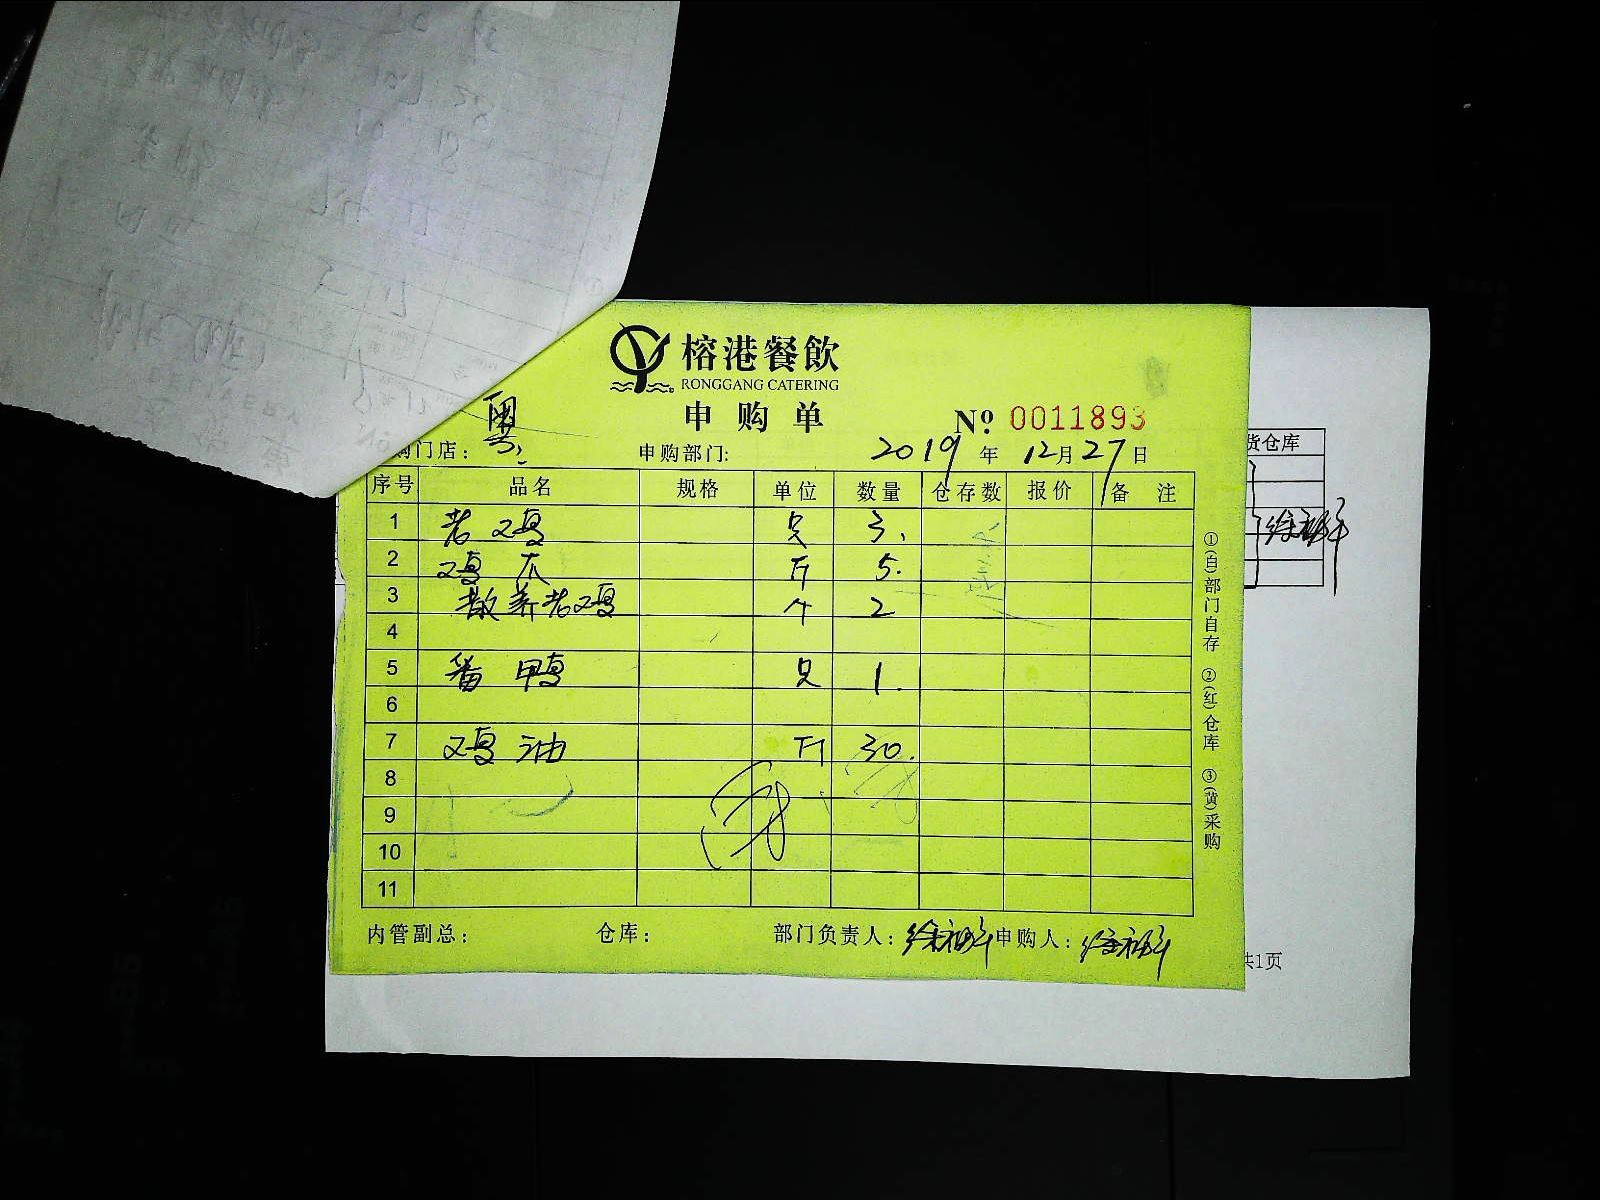 榕港餐飲
RONGGANG CATERING
申购单
№ 0011893
购门店： 粤 申购部门: 2019 年 12月27日
序号 品名 规格 单位 数量 仓存数 报价 备注
1 老鸡 只 3.
2 鸡爪 斤 5.
3 散养老鸡 个 2
4
5 番鸭 只 1.
6
7 鸡油 斤 30.
8
9
10
11
内管副总： 仓库： 部门负责人： 申购人：
①(白)部门自存 ②(红)仓库 ③(黄)采购
货仓库
共1页